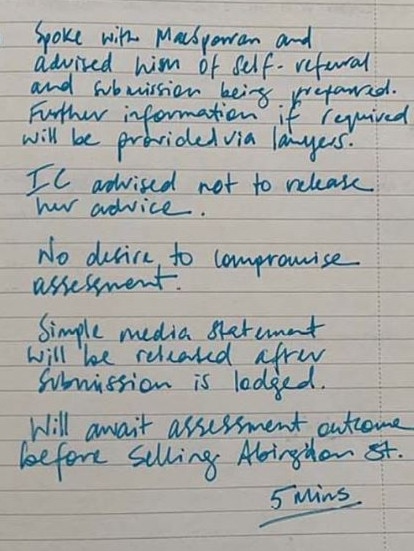 Spoke with MacSporran and
advised him of self-referral
and submission being prepared.
Further information if required
will be provided via lawyers.
IC advised not to release
her advice.
No desire to compromise
assessment.
Simple media statement
will be released after
submission is lodged.
Will await assessment outcome
before selling Abingdon St.
5 Mins